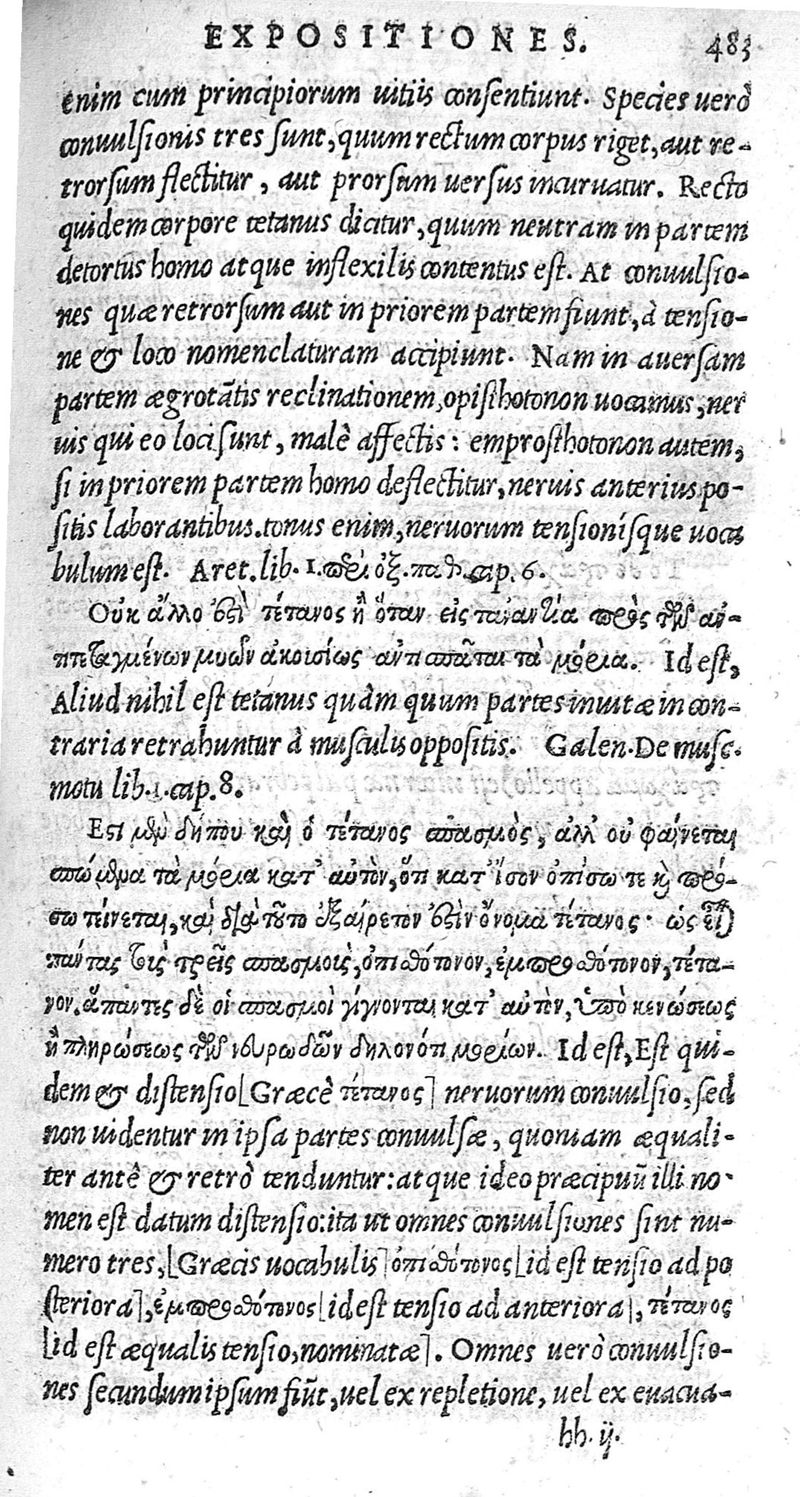 EXPOSITIONES. 483
enim cum principiorum uitiis consentiunt. Species uerò
conuulsionis tres sunt, quum rectum corpus riget, aut re-
trorsum flectitur, aut prorsum uersus incuruatur. Recto
quidem corpore tetanus dicitur, quum neutram in partem
detortus homo atque inflexilis contentus est. At conuulsio-
nes quæ retrorsum aut in priorem partem fiunt, à tensio-
ne & loco nomenclaturam accipiunt. Nam in auersam
partem ægrotãtis reclinationem, opisthotonon uocamus, ner
uis qui eo loci sunt, malè affectis: emprosthotonon autem,
si in priorem partem homo deflectitur, neruis anterius po-
sitis laborantibus. tonus enim, neruorum tensionísque uoca
bulum est. Aret. lib. 1. περὶ ὀξ. παθ. cap. 6.
Οὐκ ἄλλο ἐστὶ τέτανος ἢ ὅταν εἰς τἀναντία πρὸς τῶν ἀν-
τιτεταγμένων μυῶν ἀκουσίως ἀντισπᾶται τὰ μόρια. Id est,
Aliud nihil est tetanus quàm quum partes inuitæ in con-
traria retrahuntur à musculis oppositis. Galen. De musc.
motu lib. 1. cap. 8.
Εστι μὲν δήπου καὶ ὁ τέτανος σπασμὸς, ἀλλ' οὐ φαίνεται
σπώμενα τὰ μόρια κατ' αὐτὸν, ὅτι κατ' ἴσον ὀπίσω τε καὶ πρό-
σω τείνεται, καὶ διὰ τοῦτο ἐξαίρετόν ἐστιν ὄνομα τέτανος· ὡς εἶναι
πάντας τοὺς τρεῖς σπασμοὺς, ὀπισθότονον, ἐμπροσθότονον, τέτα-
νον. ἅπαντες δὲ οἱ σπασμοὶ γίγνονται κατ' αὐτὴν, ὑπὸ κενώσεως
ἢ πληρώσεως τῶν νευρωδῶν δηλονότι μορίων. Id est, Est qui-
dem & distensio [Græcè τέτανος] neruorum conuulsio, sed
non uidentur in ipsa partes conuulsæ, quoniam æquali-
ter antè & retrò tenduntur: atque ideo præcipuũ illi no-
men est datum distensio: ita ut omnes conuulsiones sint nu-
mero tres, [Græcis uocabulis] ὀπισθότονος [id est tensio ad po
steriora], ἐμπροσθότονος [id est tensio ad anteriora], τέτανος
[id est æqualis tensio, nominatæ]. Omnes uerò conuulsio-
nes secundum ipsum fiũt, uel ex repletione, uel ex euacua-
hh. ij.